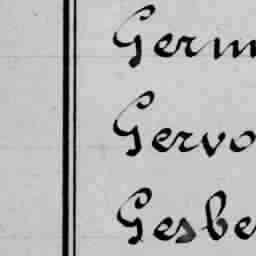 Germ
Gervo
Gesbe